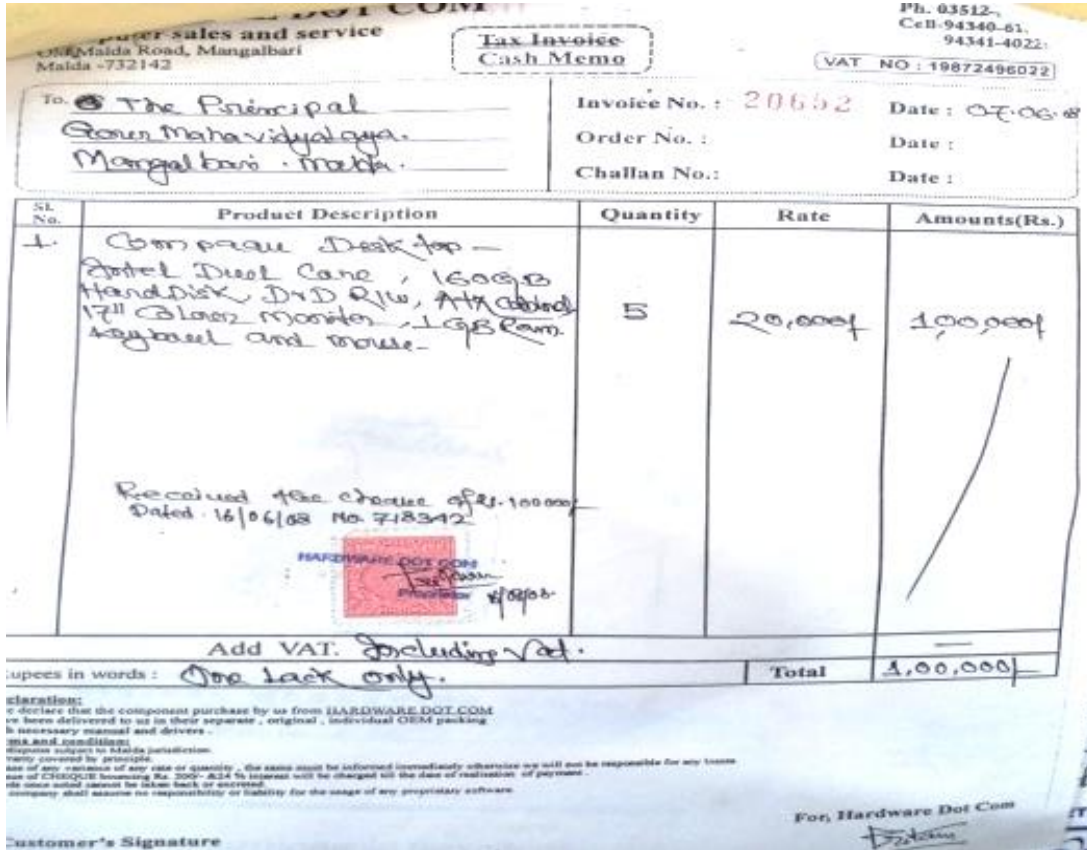 DOT COM
sales and service
Malda Road, Mangalbari
Malda -732142
Tax Invoice
Cash Memo
Ph. 03512-
Cell-94340-61
94341-4022
VAT NO : 19872496022
To. The Principal
Gour Mahavidyalaya.
Mangalbari . Malda.
Invoice No. : 20652
Date : 07.06.08
Order No. :
Date :
Challan No.:
Date :
SL. No. Product Description Quantity Rate Amounts(Rs.)
1. Compaq Desktop -
Intel Dual Core, 160GB
HardDisk, DVD R/W, ATX Cabinet
17" Colour Monitor, 1 GB Ram.
Keyboard and mouse-
5 20,000/- 1,00,000/-
Received the cheque of Rs. 100000/-
Dated. 16/06/08 No. 718342
HARDWARE DOT COM
Proprietor
Add VAT. Including Vat. —
upees in words : One Lack only. Total 1,00,000/-
claration:
e declare that the component purchase by us from HARDWARE DOT COM
ve been delivered to us in their separate , original , individual OEM packing
h necessary manual and drivers .
ms and condition:
disputes subject to Malda jurisdiction.
ranty covered by principle.
ase of any variance of any rate or quantity , the same must be informed immediately otherwise we will not be responsible for any losses
ase of CHEQUE bouncing Rs. 200/- &24 % interest will be charged till the date of realisation of payment .
company shall assume no responsibility or liability for the usage of any proprietary software
For, Hardware Dot Com
Customer's Signature